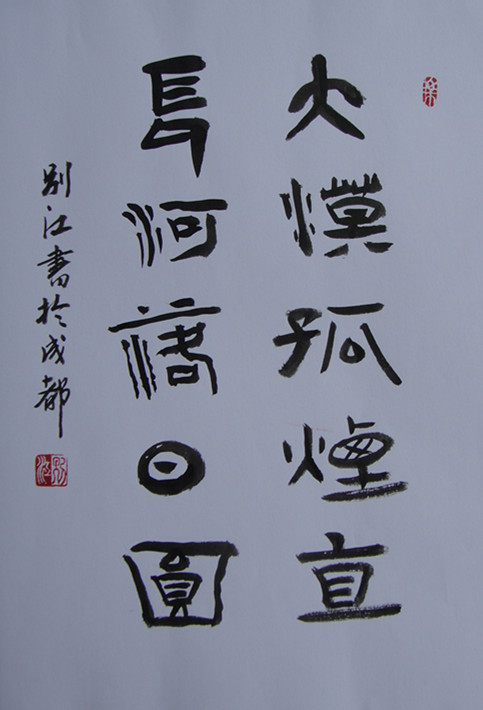 大漠孤煙直
長河落日圓
別江書於成都